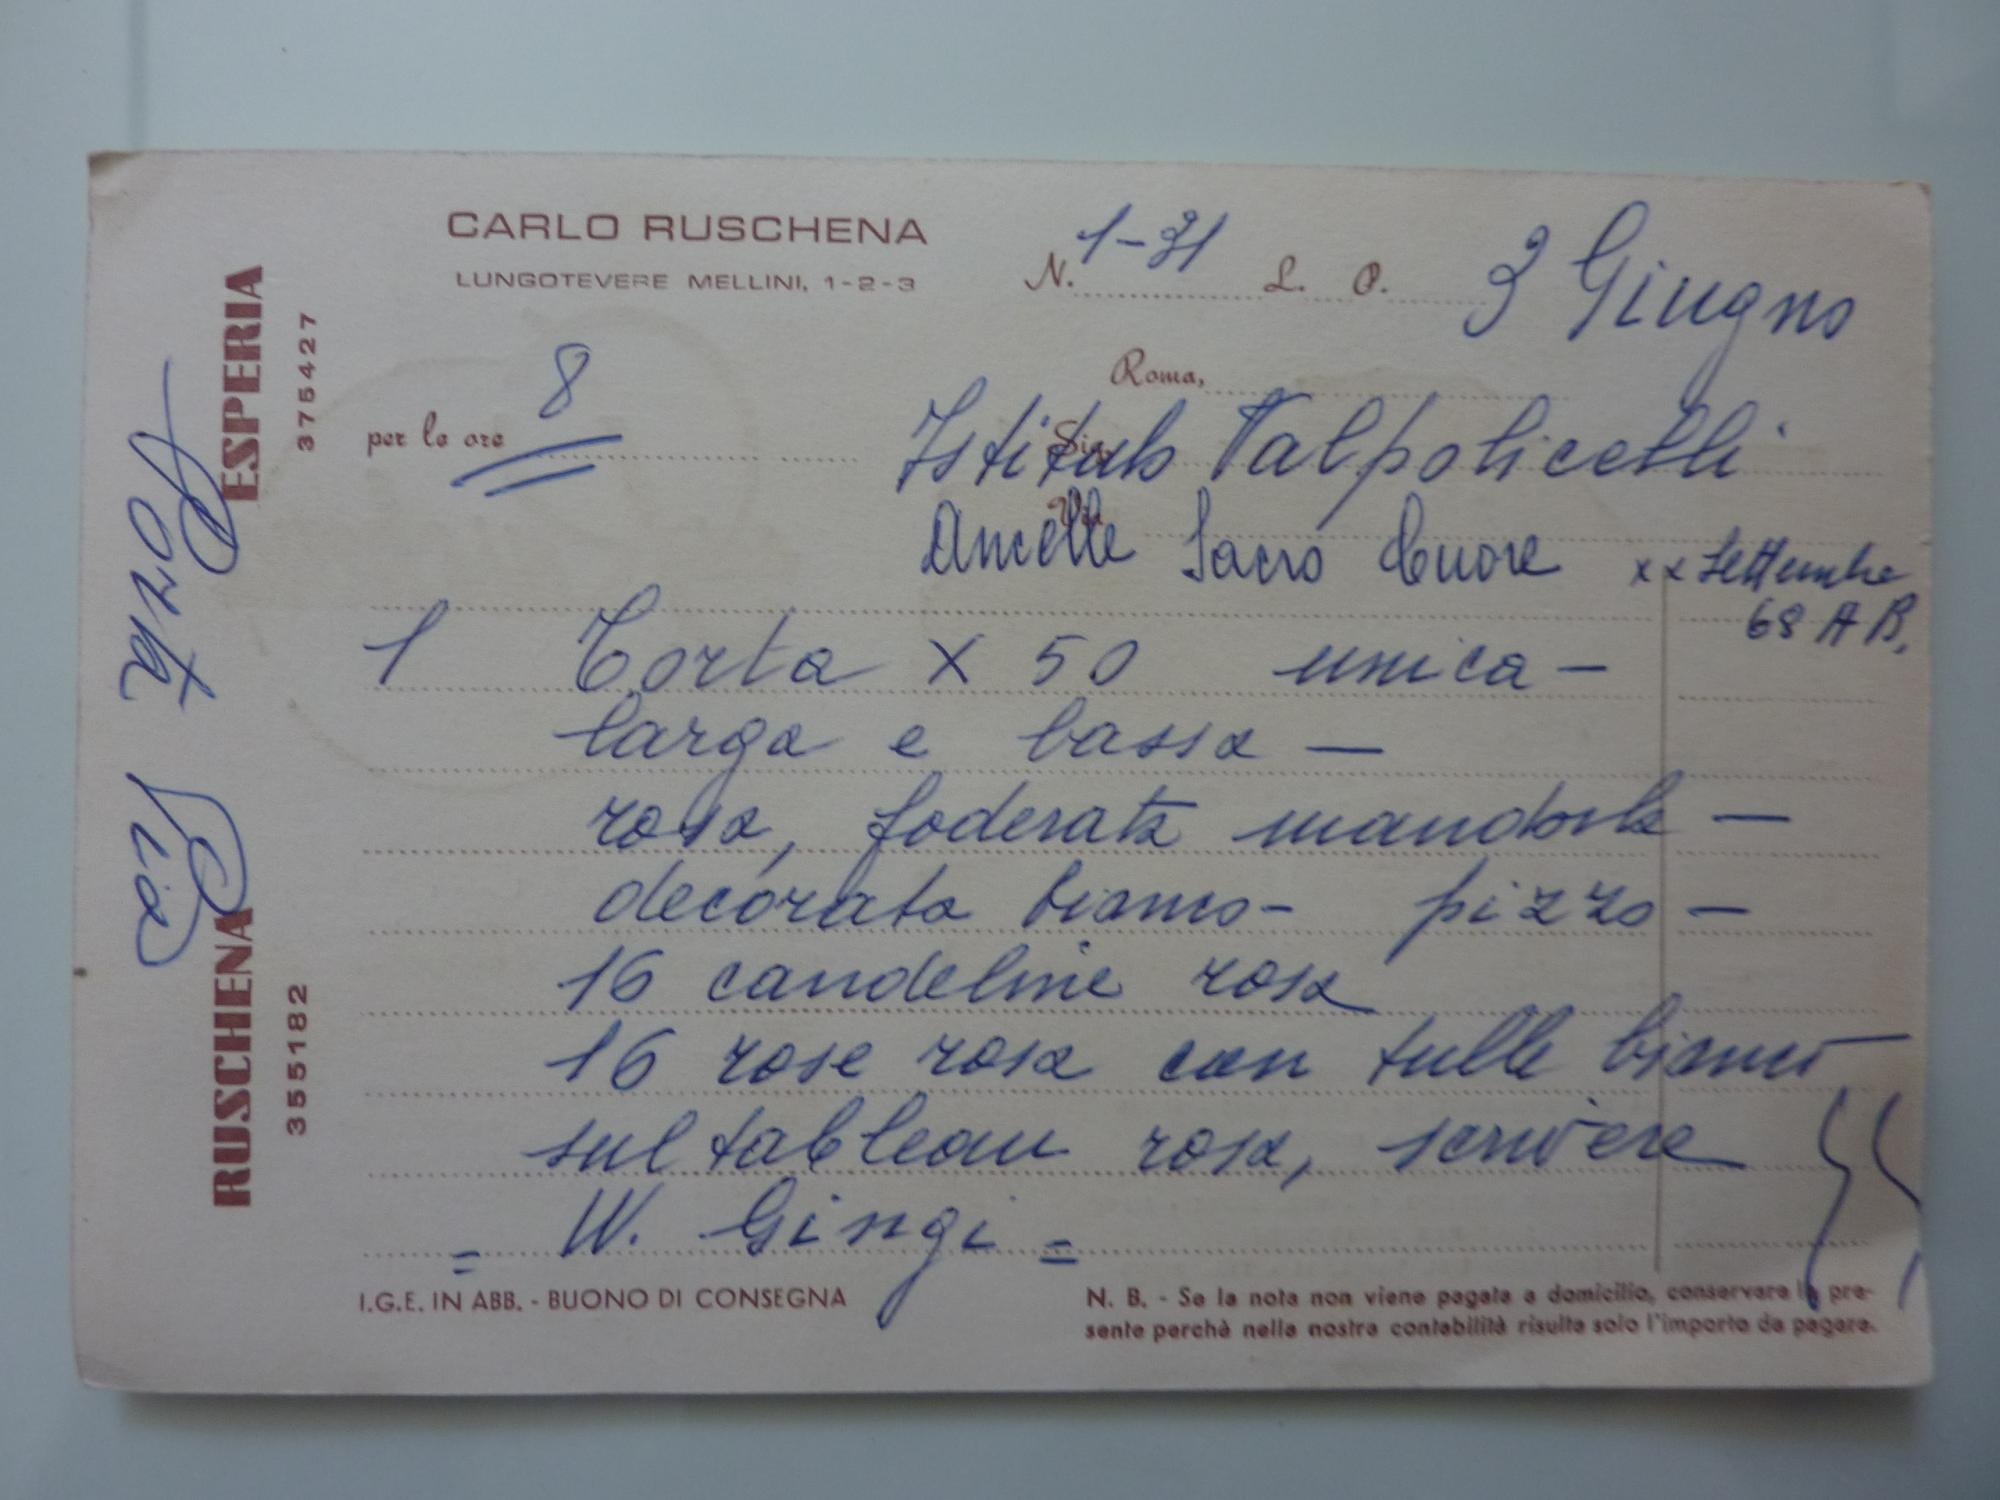 CARLO RUSCHENA
LUNGOTEVERE MELLINI, 1-2-3
N. 1-31 L. P. 3 Giugno
Roma,
per le ore 8
Sig. Istituto Valpolicelli
Via Ancelle Sacro Cuore xx Settembre
68 A B.
1 Torta X 50 unica -
larga e bassa -
rosa, foderata mandorla -
decorata bianco - pizzo -
16 candeline rosa
16 rose rosa con tulle bianco
sul tableau rosa, scrivere
= W. Gingi =
I.G.E. IN ABB. - BUONO DI CONSEGNA
N. B. - Se la nota non viene pagata a domicilio, conservare la pre-
sente perchè nella nostra contabilità risulta solo l'importo da pagare.
ESPERIA
375427
RUSCHENA
355182
Pia